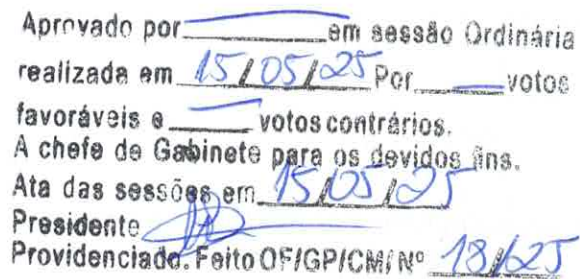 Aprovado por em sessão Ordinária
realizada em 15/05/25 Por votos
favoráveis e votos contrários.
A chefe de Gabinete para os devidos fins.
Ata das sessões em 15/05/25
Presidente
Providenciado. Feito OF/GP/CM/Nº 18/25